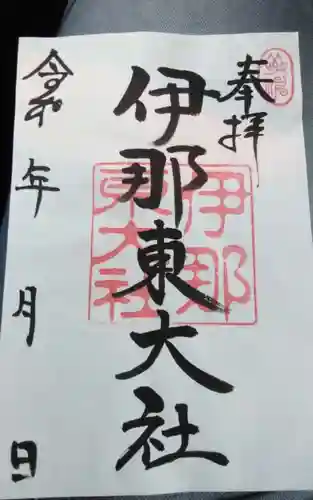 奉拝
伊那東大社
令和 年 月 日
伊那
東大社